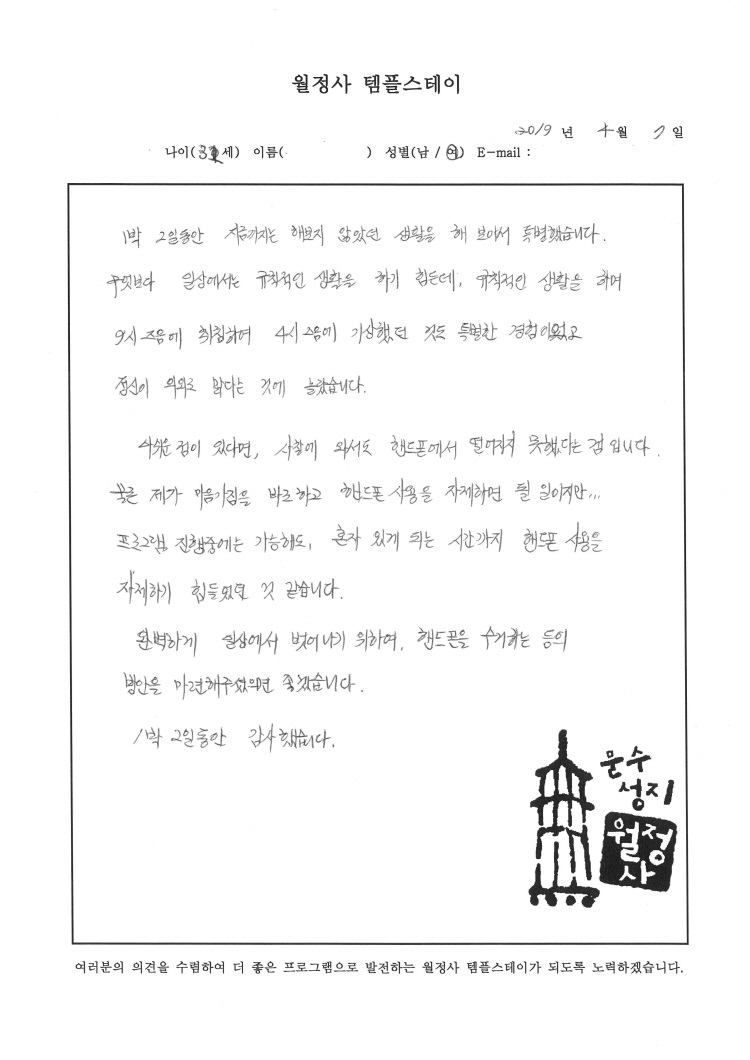 월정사 템플스테이
2019 년 4 월 7 일
나이( 세) 이름( ) 성별(남 / 여) E-mail :
1박 2일동안 지금까지는 해보지 않았던 생활을 해 보아서 특별했습니다.
무엇보다 일상에서는 규칙적인 생활을 하기 힘든데, 규칙적인 생활을 하며
9시 즈음에 취침하여 4시 즈음에 기상했던 것도 특별한 경험이었고
정신이 의외로 맑다는 것에 놀랐습니다.
아쉬운 점이 있다면, 사찰에 와서도 핸드폰에서 떨어지지 못했다는 점 입니다.
물론 제가 마음가짐을 바로하고 핸드폰 사용을 자제하면 될 일이지만...
프로그램 진행중에는 가능해도, 혼자 있게 되는 시간까지 핸드폰 사용을
자제하기 힘들었던 것 같습니다.
완벽하게 일상에서 벗어나기 위하여, 핸드폰을 수거하는 등의
방안을 마련해주셨으면 좋겠습니다.
1박 2일동안 감사했습니다.
문수
성지
월정
사
여러분의 의견을 수렴하여 더 좋은 프로그램으로 발전하는 월정사 템플스테이가 되도록 노력하겠습니다.